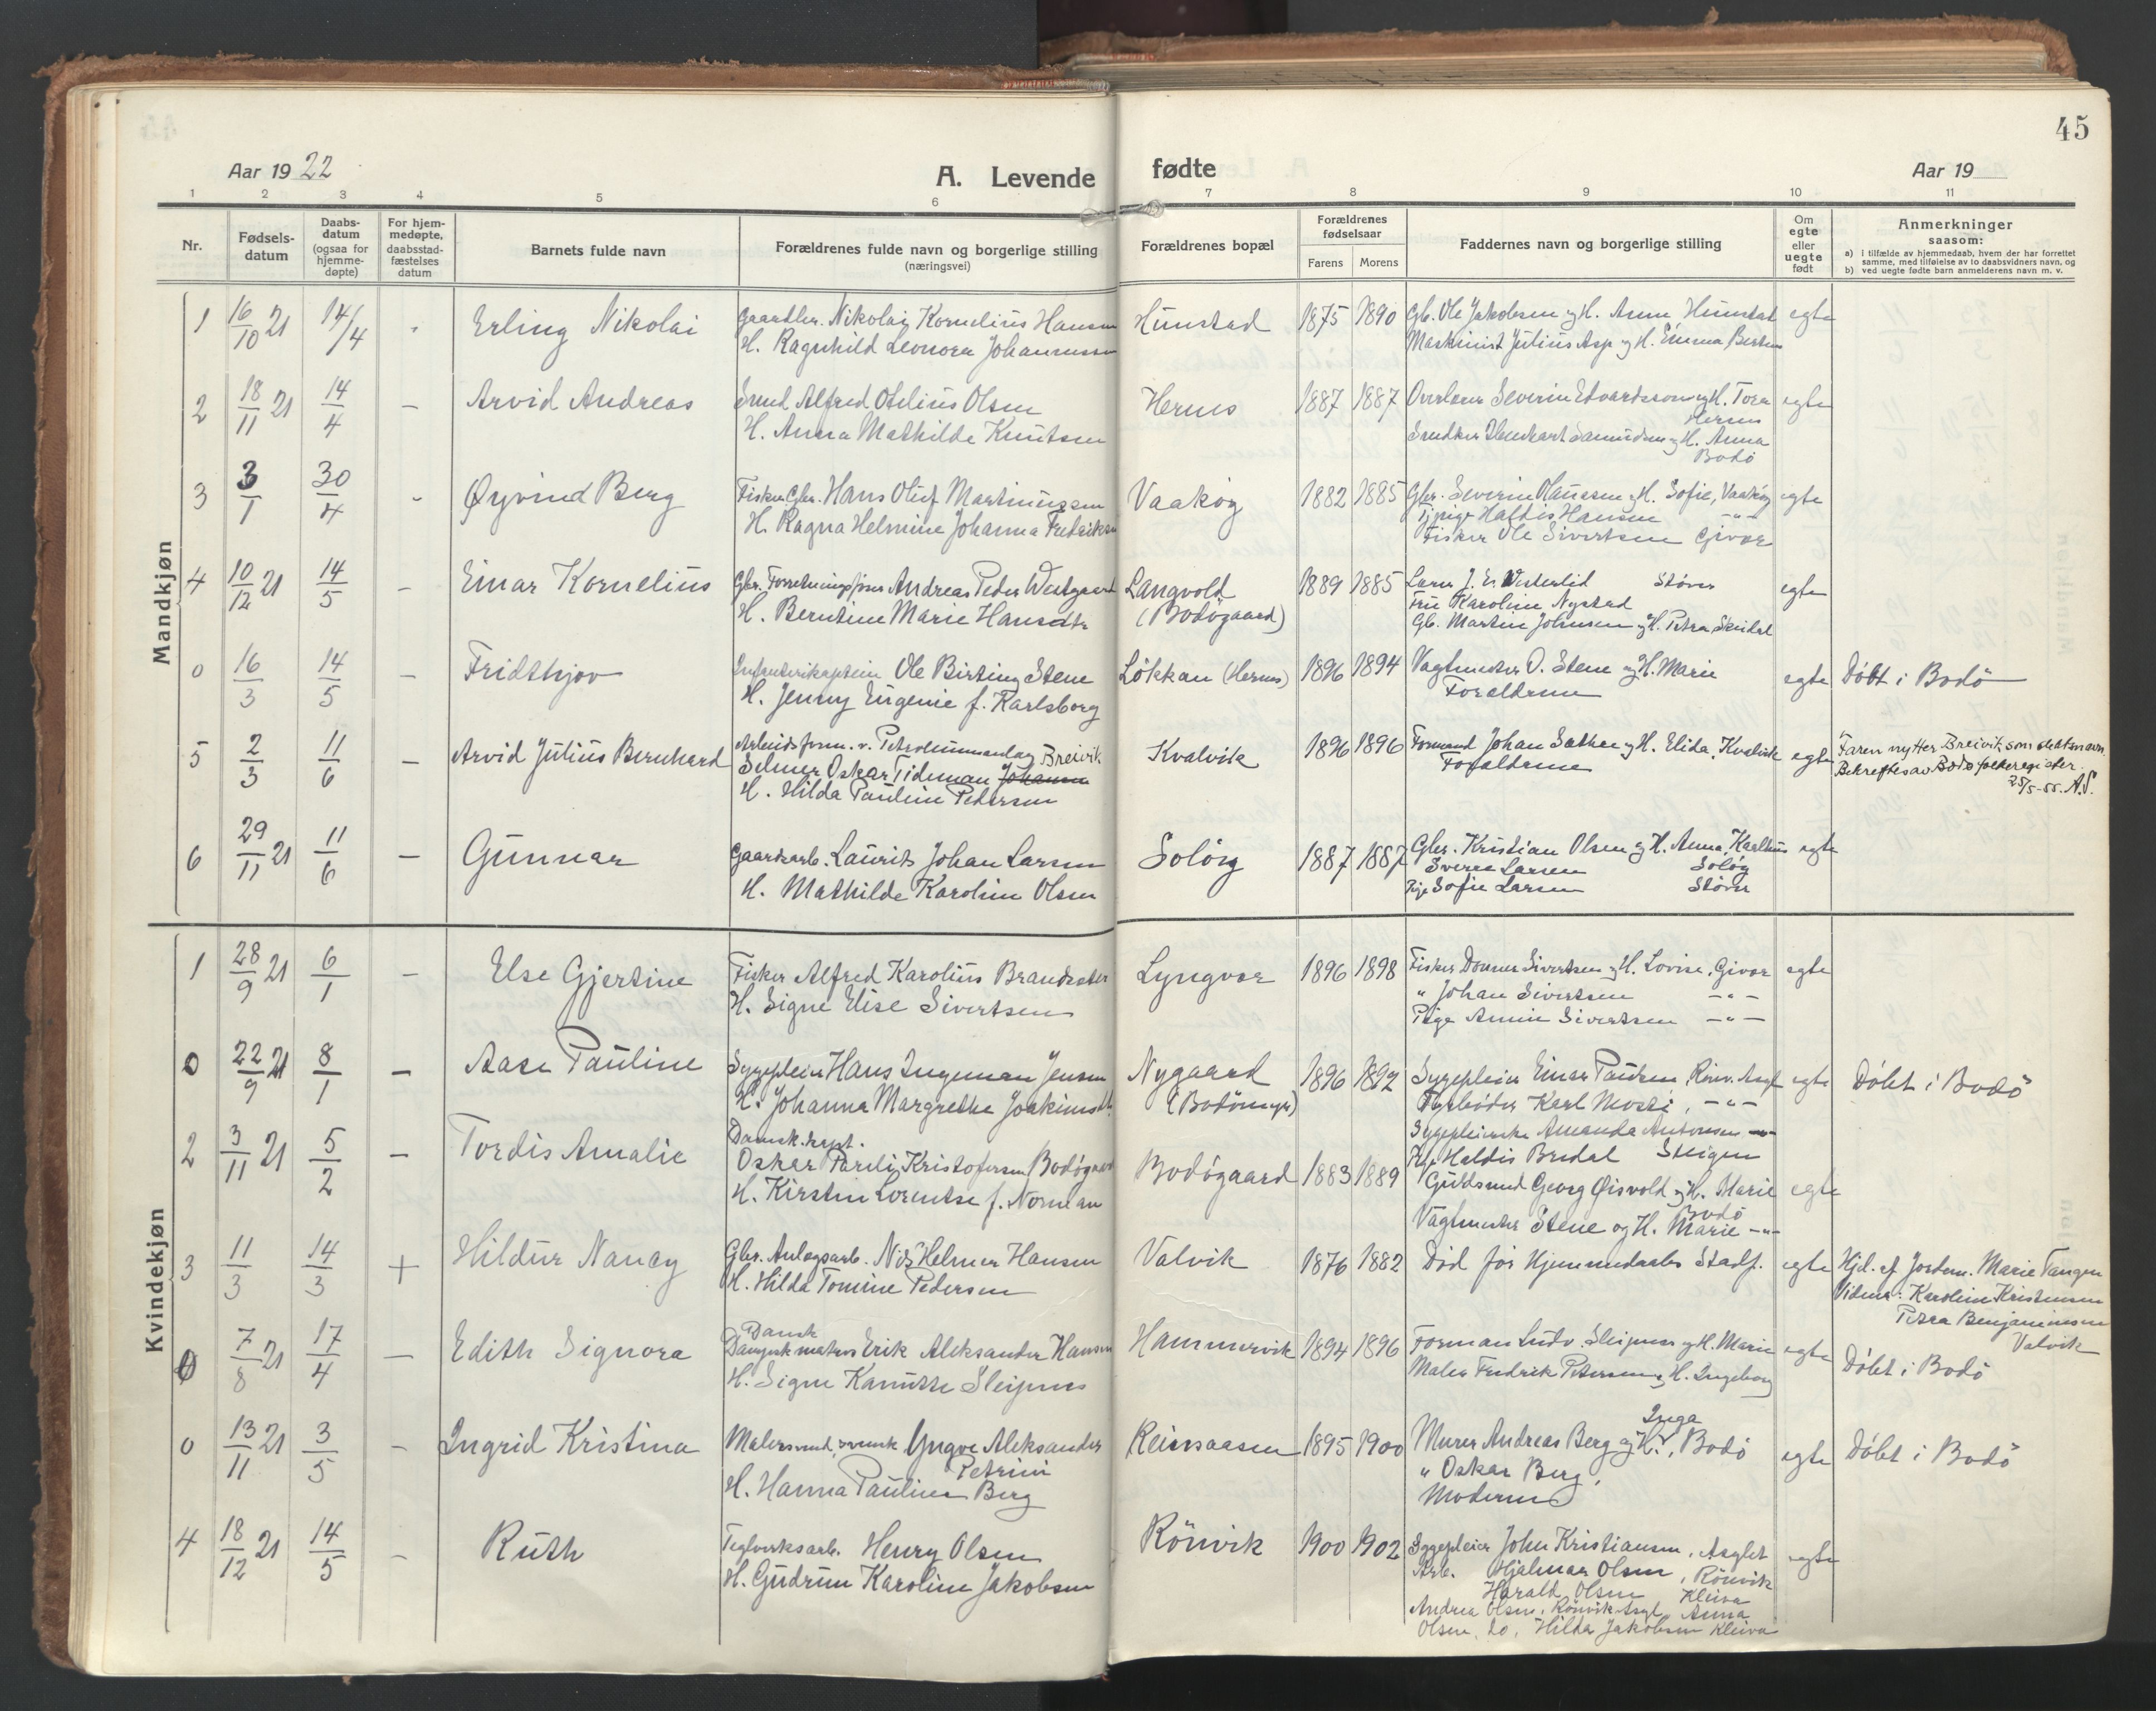 45
Aar 1922
A. Levende fødte
Aar 19
1 2 3 4 5 6 7 8 9 10 11
Nr.
Fødsels-
datum
Daabs-
datum
(ogsaa for
hjemme-
døpte)
For hjem-
medøpte,
daabsstad-
fæstelses
datum
Barnets fulde navn
Forældrenes fulde navn og borgerlige stilling
(næringsvei)
Forældrenes bopæl
Forældrenes
fødselsaar
Farens Morens
Faddernes navn og borgerlige stilling
Om
egte
eller
uegte
født
Anmerkninger
saasom:
a) i tilfælde av hjemmedaab, hvem der har forrettet
samme, med tilføielse av to daabsvidners navn, og
b) ved uegte fødte barn anmelderens navn m. v.
Mandkjøn
1 16/10 21 14/4 Erling Nikolai
Gaardbr. Nikolai Kornelius Hansen
H. Ragnhild Leonora Johannessen
Hunstad 1875 1890
Gb. Ole Jakobsen og H. Anna Hunstad egte
Maskinist Julius Asp og H. Emma
2 18/11 21 14/4 – Arvid Andreas
Smed Alfred Otelius Olsen
H. Anna Mathilde Knutsen
Hernes 1887 1887
Overlærer Severin Edvardsson og H. Tora egte
Hernes
og H. Anna
Bodö
3 3/1 30/4 - Øyvind Berg
Fisker Gbr. Hans Oluf Martinussen
H. Ragna Helmine Johanna Fredriksen
Vaakøy 1882 1885
Gbr. Severin Hansen og H. Sofie, Vaakøy egte
Pige Haldis Hansen -"-
Fisker Ole Sivertsen Givær
4 10/12 21 14/5 – Einar Kornelius
Gbr. Forretningsfører Andreas Peder Westgaard
H. Berntine Marie Hansdtr
Langvold
(Bodøgaard)
1889 1885
Lærer J. E. Westerlid Støver egte
Fru Karoline Nystad
Gb. Martin Johnsen og H. Petra Skeidal
0 16/3 14/5 – Fridthjov
Infanterikaptein Ole Birting Stene
H. Jenny Eugenie f. Karlsborg
Lökkan (Hernes) 1896 1894
Vagtmester O. Stene og H. Marie
Forældrene
egte Döbt i Bodö
5 2/3 11/6 – Arvid Julius Bernhard
Arbeidsform. v. Petroleumsanlæg Breivik.
Selmer Oskar Tideman Johansen
H. Hilda Pauline Pedersen
Kvalvik 1896 1896
Formand Johan Sæther og H. Elida, Kvalvik egte
Forældrene
Faren nytter Breivik som slektsnavn.
Bekreftes av Bodø folkeregister.
25/5-55. A.S.
6 29/11 21 11/6 – Gunnar
Gaardsarb. Laurits Johan Larsen
H. Mathilde Karoline Olsen
Soløy 1887 1887
Gbr. Kristian Olsen og H. Anna, egte
Sverre Larsen Soløy
Pige Sofie Larsen Støver
Kvindekjøn
1 28/9 21 6/1 – Else Gjertine
Fisker Alfred Karolius Brandsæter
H. Signe Elise Sivertsen
Lyngvær 1896 1898
Fisker Sivertsen og H. Lovise, Givær egte
" Johan Sivertsen -"-
Pige Annie Sivertsen -"-
0 22/9 21 8/1 – Aase Pauline
Sygepleier Hans Ingeman Jensen
H. Johanna Margrethe Joakimsdtr.
Nygaard
(Bodömyr)
1896 1892
Sygepleier Einar Paulsen, Rönv. Asyl egte
Karl Mosti, -"-
Sygepleierske Amanda Antonsen -"-
Döbt i Bodö
2 3/11 21 5/2 – Tordis Amalie
Dampsk.kapt.
Oskar Pareli Kristofersen Bodøgaard
H. Kirsten Lorentse f. Norman
Bodøgaard 1883 1889
Pige Haldis Bredal Steigen
Guldsmed Georg Øisvold og H. Marie egte
Bodö
Vagtmester Stene og H. Marie -"-
3 11/3 14/3 + Hildur Nancy
Gbr. Anlægsarb. Nils Helmer Hansen
H. Hilda Tomine Pedersen
Valvik 1876 1882
Död før Hjemmedaabs Stadf. egte
Hjd. af Jordem. Marie Tangen
Vidner: Karoline Kristensen
Petra Benjaminsen
Valvik
0 7/8 21 17/4 – Edith Signora
Dansk
Dampsk.matros Erik Aleksander Hansen
H. Signe Kanutte Sleipnes
Hammervik 1894 1896
Forman Ludv. Sleipnes og H. Marie egte
Maler Fredrik Petersen og H. Ingeborg
Döbt i Bodö
0 13/11 21 3/5 – Ingrid Kristina
Malersvend, svensk Yngve Aleksander
Petrini
H. Hanna Pauline Berg
Reinsaasen 1895 1900
Murer Andreas Berg og H. Inga, Bodö egte
" Oskar Berg,
Moderen
Döbt i Bodö
4 18/12 21 14/5 – Ruth
Teglverksarb. Henry Olsen
H. Gudrun Karoline Jakobsen
Rönvik 1900 1902
Sygepleier John Kristiansen, Asylet egte
Arb. Hjalmar Olsen, Rönvik
Harald Olsen Kleiva
Andrea Olsen, Rönvik Asyl, Anna
Olsen, do, Hilda Jakobsen Kleiva